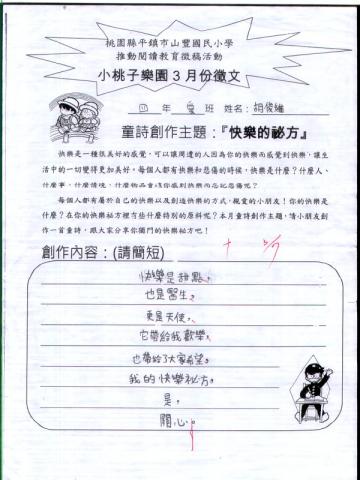 桃園縣平鎮市山豐國民小學
推動閱讀教育徵稿活動
小桃子樂園 3 月份徵文
四 年 壹 班 姓名: 胡俊繼
童詩創作主題：『快樂的祕方』
快樂是一種很美好的感覺，可以讓周遭的人因為你的快樂而感覺到快樂，讓生
活中的一切變得更加美好。每個人都有快樂和悲傷的時候，快樂是什麼？什麼人、
什麼事、什麼情境、什麼物品會讓你感到快樂而忘記悲傷呢？
每個人都有屬於自己的快樂以及創造快樂的方式，親愛的小朋友！你的快樂是
什麼？在你的快樂祕方裡有些什麼特別的原料呢？本月童詩創作主題，請小朋友創
作一首童詩，跟大家分享你獨門的快樂祕方吧！
創作內容：(請簡短)
快樂是甜點，
也是醫生，
更是天使，
它帶給我歡樂，
也帶給了大家希望。
我的快樂祕方，
是，
關心。